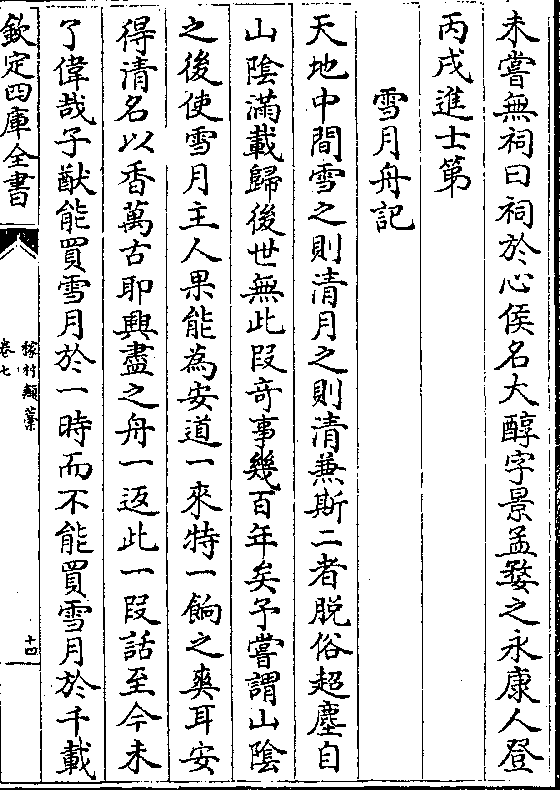 未嘗無祠曰祠於心侯名大醇字景孟婺之永康人登
丙戌進士第
雪月舟記
天地中間雪之則清月之則清兼斯二者脱俗超塵自
山陰滿載歸後世無此叚竒事幾百年矣予嘗謂山陰
之後使雪月主人果能為安道一來特一餉之爽耳安
得清名以香萬古耶興盡之舟一返此一叚話至今未
了偉哉子猷能買雪月於一時而不能買雪月於千載
欽定四庫全書
稼村類藁
卷七
十四